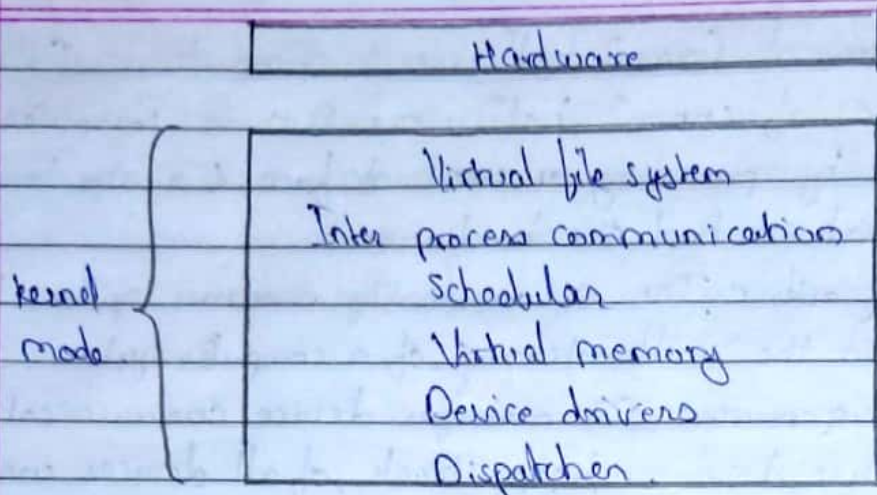 Hardware
Virtual file system
Inter process communication
kernel
Schedular
mode
Virtual memory
Device drivers
Dispatcher.